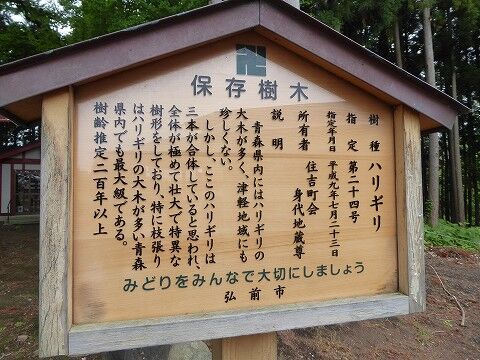 卍
保存樹木
樹種 ハリギリ
指定 第二十四号
指定年月日 平成九年七月二十三日
所有者 住吉町会
身代地蔵尊
説明
青森県内にはハリギリの
大木が多く、津軽地域にも
珍しくない。
しかし、ここのハリギリは
三本が合体していると思われ、
全体が極めて壮大で特異な
樹形をしており、特に枝張り
はハリギリの大木が多い青森
県内でも最大級である。
樹齢推定二百年以上
みどりをみんなで大切にしましょう
弘前市